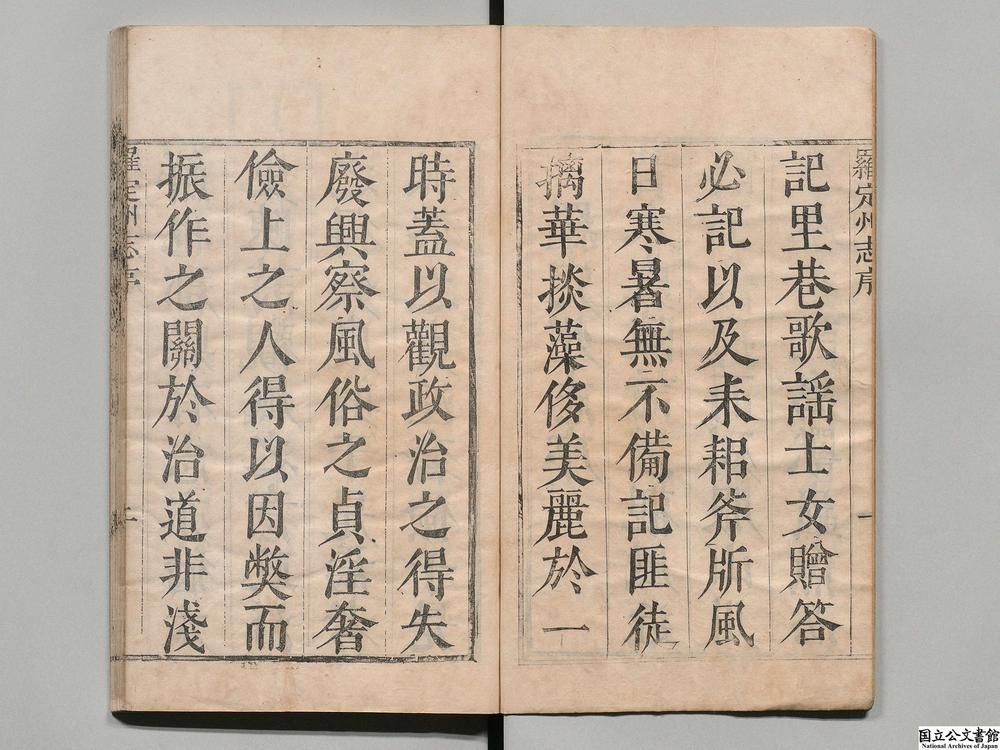 羅定州志序
一
記里巷歌謡士女贈答
必記以及耒耜斧斨風
日寒暑無不備記匪徒
摛華掞藻侈美麗於一
時蓋以觀政治之得失
廢興察風俗之貞淫奢
儉上之人得以因獘而
振作之關於治道非淺
羅定州志序
国立公文書館
National Archives of Japan